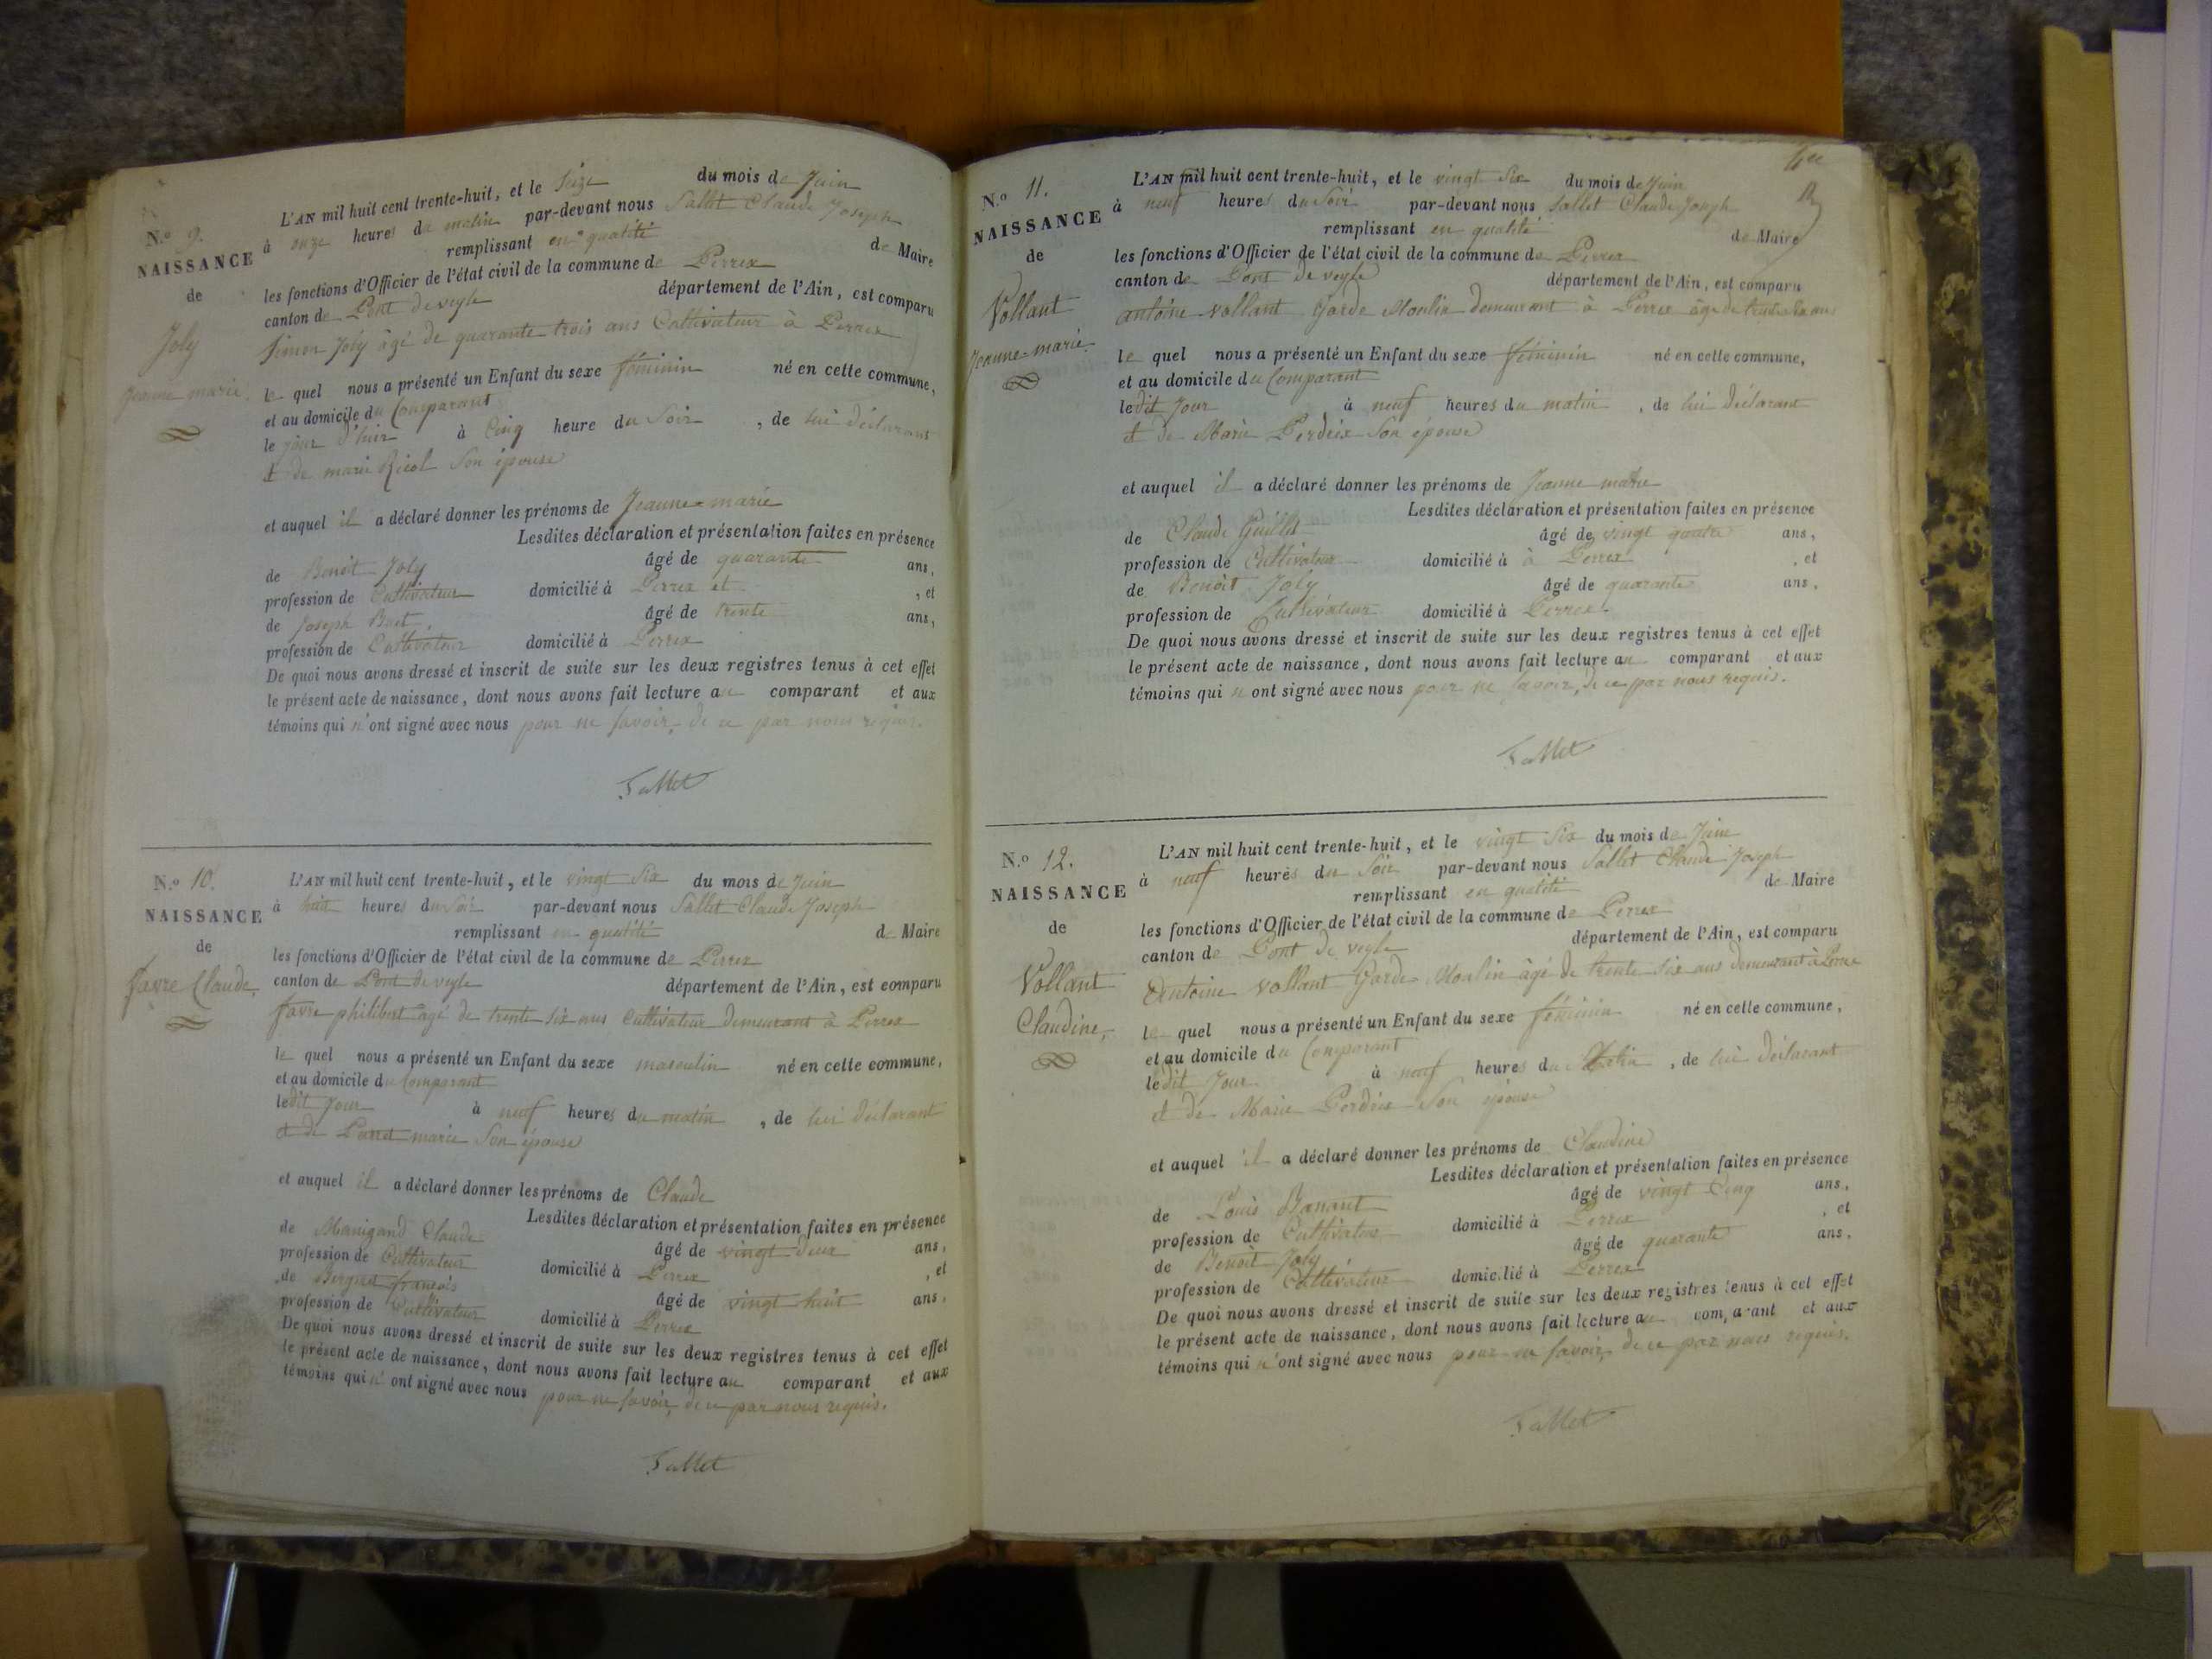 N.o 9.
NAISSANCE
de
Joly
Jeanne marie.
L'AN mil huit cent trente-huit, et le Seize du mois de Juin
à onze heures du matin par-devant nous Sallet Claude Joseph
remplissant en qualité de Maire
les fonctions d'Officier de l'état civil de la commune de Perrex
canton de Pont de veyle département de l'Ain, est comparu
Simon Joly âgé de quarante trois ans Cultivateur à Perrex
le quel nous a présenté un Enfant du sexe féminin né en cette commune,
et au domicile du Comparant
le jour d'hier à Cinq heure du Soir , de lui déclarant
et de marie Son épouse
et auquel il a déclaré donner les prénoms de Jeanne-marie
Lesdites déclaration et présentation faites en présence
de Benoit Joly âgé de quarante ans,
profession de Cultivateur domicilié à Perrex et , et
de Joseph âgé de trente ans,
profession de Cultivateur domicilié à Perrex
De quoi nous avons dressé et inscrit de suite sur les deux registres tenus à cet effet
le présent acte de naissance, dont nous avons fait lecture au comparant et aux
témoins qui n'ont signé avec nous pour ne savoir, de ce par nous requis.
Sallet
N.o 10.
NAISSANCE
de
favre Claude,
L'AN mil huit cent trente-huit, et le vingt Six du mois de Juin
à huit heures du Soir par-devant nous Sallet Claude Joseph
remplissant en qualité de Maire
les fonctions d'Officier de l'état civil de la commune de Perrex
canton de Pont de veyle département de l'Ain, est comparu
favre philibert âgé de trente six ans Cultivateur demeurant à Perrex
le quel nous a présenté un Enfant du sexe masculin né en cette commune,
et au domicile du Comparant
ledit Jour à neuf heures du matin , de lui déclarant
et de marie Son épouse
et auquel il a déclaré donner les prénoms de Claude
Lesdites déclaration et présentation faites en présence
de Manigand Claude âgé de vingt deux ans,
profession de Cultivateur domicilié à Perrex , et
de françois âgé de vingt huit ans,
profession de Cultivateur domicilié à Perrex
De quoi nous avons dressé et inscrit de suite sur les deux registres tenus à cet effet
le présent acte de naissance, dont nous avons fait lecture au comparant et aux
témoins qui n'ont signé avec nous pour ne savoir, de ce par nous requis.
Sallet
N.o 11.
NAISSANCE
de
Vollant
Jeanne-marie.
L'AN mil huit cent trente-huit, et le vingt Six du mois de Juin
à neuf heures du Soir par-devant nous Sallet Claude Joseph
remplissant en qualité de Maire
les fonctions d'Officier de l'état civil de la commune de Perrex
canton de Pont de veyle département de l'Ain, est comparu
antoine vollant Garde Moulin demeurant à Perrex âgé de trente six ans
le quel nous a présenté un Enfant du sexe féminin né en cette commune,
et au domicile du Comparant
ledit Jour à neuf heures du matin , de lui déclarant
et de Marie Perdrix Son épouse
et auquel il a déclaré donner les prénoms de Jeanne marie
Lesdites déclaration et présentation faites en présence
de Claude âgé de vingt quatre ans,
profession de Cultivateur domicilié à à Perrex , et
de Benoit Joly âgé de quarante ans,
profession de Cultivateur domicilié à Perrex.
De quoi nous avons dressé et inscrit de suite sur les deux registres tenus à cet effet
le présent acte de naissance, dont nous avons fait lecture au comparant et aux
témoins qui n ont signé avec nous pour ne savoir, de ce par nous requis.
Sallet
N.o 12.
NAISSANCE
de
Vollant
Claudine,
L'AN mil huit cent trente-huit, et le vingt Six du mois de Juin
à neuf heures du Soir par-devant nous Sallet Claude Joseph
remplissant en qualité de Maire
les fonctions d'Officier de l'état civil de la commune de Perrex
canton de Pont de veyle département de l'Ain, est comparu
Antoine vollant Garde Moulin âgé de trente six ans demeurant à Perrex
le quel nous a présenté un Enfant du sexe féminin né en cette commune,
et au domicile du Comparant
ledit Jour à neuf heures du Matin , de lui déclarant
et de Marie Perdrix Son épouse
et auquel il a déclaré donner les prénoms de Claudine
Lesdites déclaration et présentation faites en présence
de Louis Banant âgé de vingt Cinq ans,
profession de Cultivateur domicilié à Perrex , et
de Benoit Joly âgé de quarante ans,
profession de Cultivateur domicilié à Perrex
De quoi nous avons dressé et inscrit de suite sur les deux registres tenus à cet effet
le présent acte de naissance, dont nous avons fait lecture au comparant et aux
témoins qui n'ont signé avec nous pour ne savoir, de ce par nous requis.
Sallet